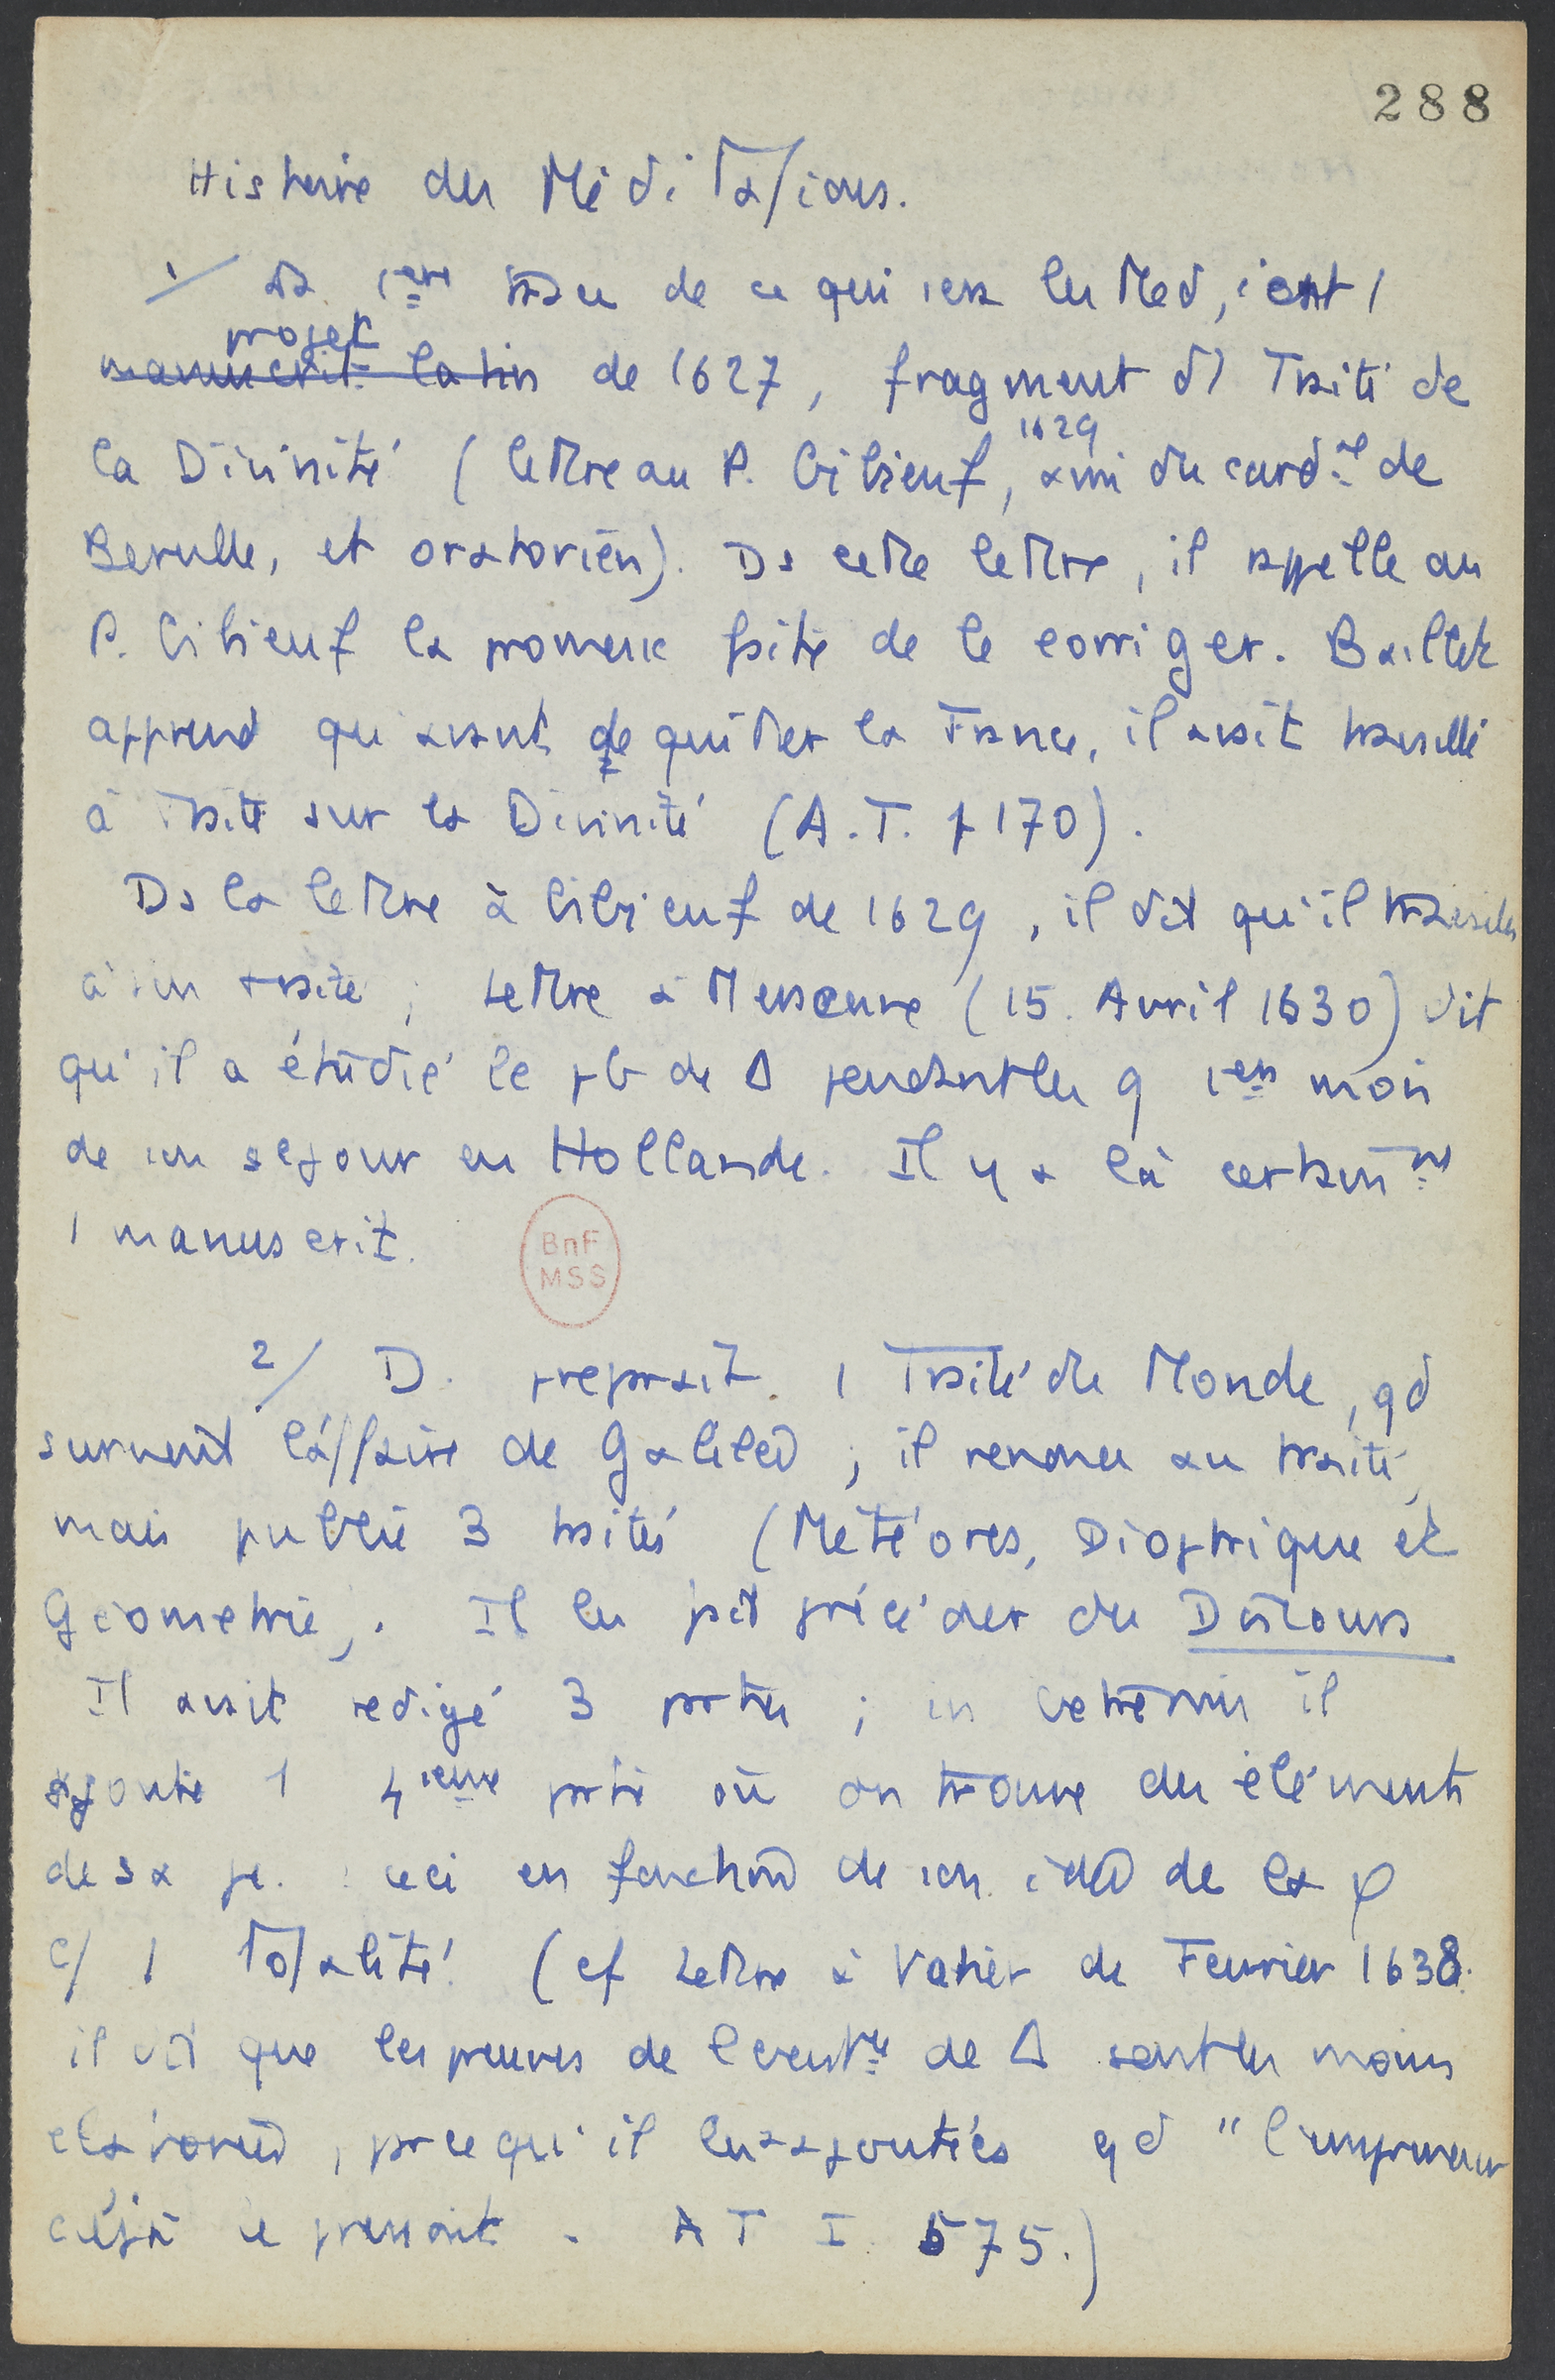 288
Histoire des Méditations.
1/ La 1ère trace de ce qui sera les Med, c'est 1
projet
manuscrit latin de 1627, fragment d'1 Traité de
1629
la Divinité (lettre au P. Gibieuf, ami du cardal de
Berulle, et oratorien). Ds cette lettre, il rappelle au
P. Gibieuf la promesse faite de le corriger. Baillet
apprend qu'avant de quitter la France, il avait travaillé
à traité sur la Divinité (A.T. p 170).
Ds la lettre à Gibieuf de 1629, il dit qu'il travaille
à un traité ; Lettre à Mersenne (15. Avril 1630) dit
qu'il a étudié le pb de Δ pendant les 9 1ers mois
de son sejour en Hollande. Il y a là certainnt
1 manuscrit.
BnF
MSS
2/ D. preparait 1 Traité du Monde, qd
survient l'affaire de Galilée ; il renonce au traité,
mais publie 3 traités (Météores, Dioptrique et
Géometrie). Il les fait précéder du Discours
Il avait redigé 3 parties ; in extremis il
ajoute 1 4ieme partie où on trouve des éléments
de sa pe. : ceci en fonction de son idée de la φ
c/ 1 totalité. (cf Lettre à Vatier de Fevrier 1638.
il dit que les preuves de l'existce de Δ sont les moins
élaborées, parce qu'il les a ajoutées qd "l'imprimeur
déjà le pressait. A T I 575.)